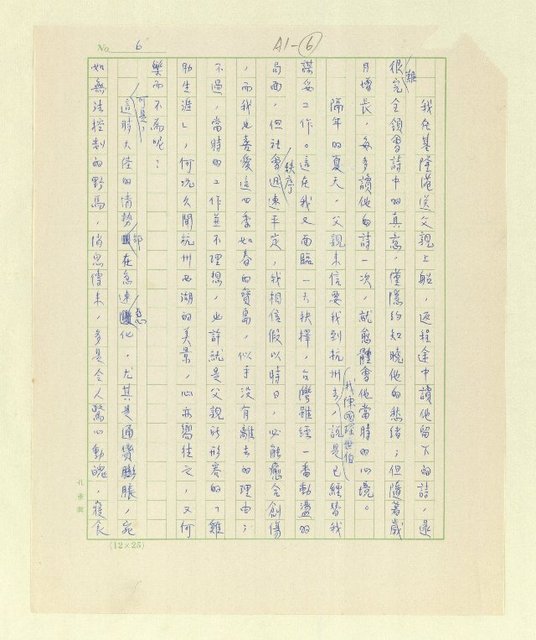 No. 6
A1-⑥
我在基隆港送父親上船，返程途中讀他留下的詩，還
很難完全領會詩中的真意，僅隱約知曉他的悲緒；但隨著歲
月增長，每多讀他的詩一次，就愈體會他當時的心境。
隔年的夏天，父親來信要我到杭州去，說是已經替我
我陳國琛世伯
謀妥工作。這在我又面臨一大抉擇，台灣雖經一番動盪的
局面，但社會秩序迅速平定，我相信假以時日，必能癒合創傷
，而我也喜愛這四季如春的寶島，似乎沒有離去的理由；
不過，當時的工作並不理想，也許就是父親所形容的「雞
肋生涯」，何況久聞杭州西湖的美景，心亦嚮往之，又何
樂而不為呢？
可是，這時大陸的情勢卻在急速惡化，尤其是通貨膨脹，宛
如無法控制的野馬，消息傳來，多是令人驚心動魄，寢食
(12×25)